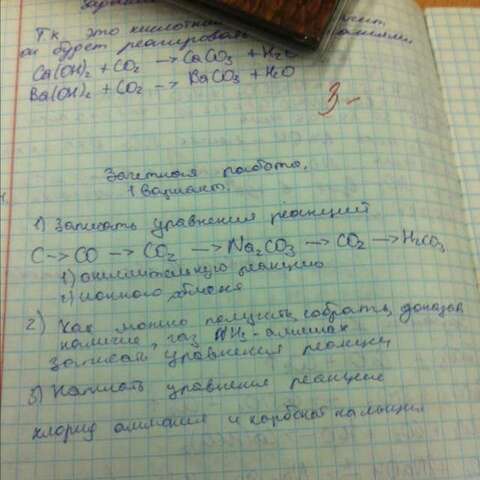 Т.к. это кислотный
он будет реагировать
Ca(OH)₂ + CO₂ → CaCO₃ + H₂O
Ba(OH)₂ + CO₂ → BaCO₃ + H₂O
3-
Зачетная работа.
1 Вариант.
1) Записать уравнения реакций
C → CO → CO₂ → Na₂CO₃ → CO₂ → H₂CO₃
1) окислительную реакцию
2) ионного обмена
2) Как можно получить, собрать, доказать
наличие, газ NH₃ - аммиак
Записать уравнения реакций
3) Написать уравнение реакции
хлорид аммония и карбонат кальция